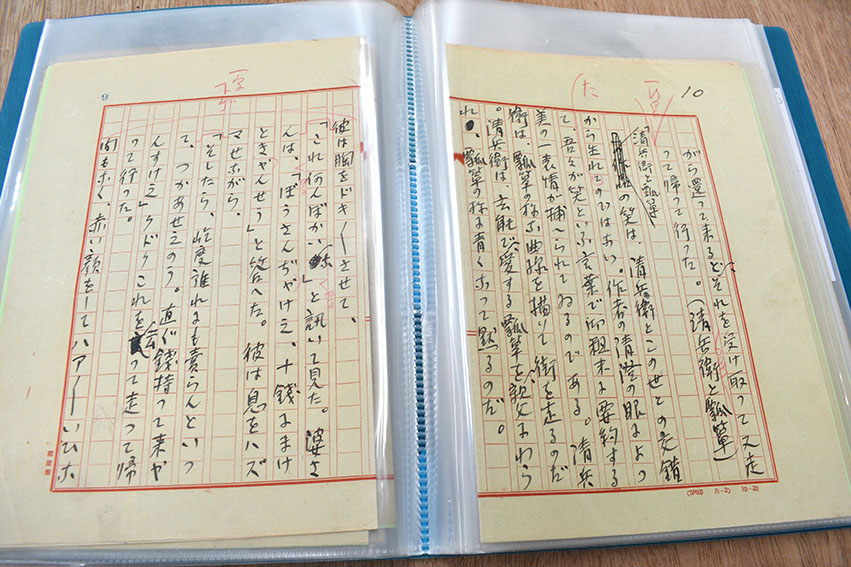 9
彼は胸をドキ〳〵させて、
「これ何んぼかいな」と訊いて見た。婆さ
んは、「ぼうさんぢやけえ、十銭にまけ
ときやんせう」と答へた。彼は息をハズ
マせながら、
「そしたら、屹度誰れにも賣らんといつ
て、つかあせえのう。直ぐ錢持つて来や
んすけえ」クドくこれを云つて走つて帰
つて行つた。
間もなく、赤い顔をしてハア〳〵いひな
10
がら還つて来ると、それを受け取つて又走
つて帰つて行つた。(清兵衛と瓢箪)
「清兵衛と瓢箪」
の笑は、清兵衛とこの世との交錯
から生れたのではない。作者の清澄の眼によつ
て、吾々が笑といふ言葉で粗末に要約する
美の一表情が捕へられてゐるのである。清兵
衛は、瓢箪の様な曲線を描いて街を走るのだ
。清兵衛は、玄能で愛する瓢箪を親父にわら
れ、瓢箪の様に青くなつて黙るのだ。
10-20